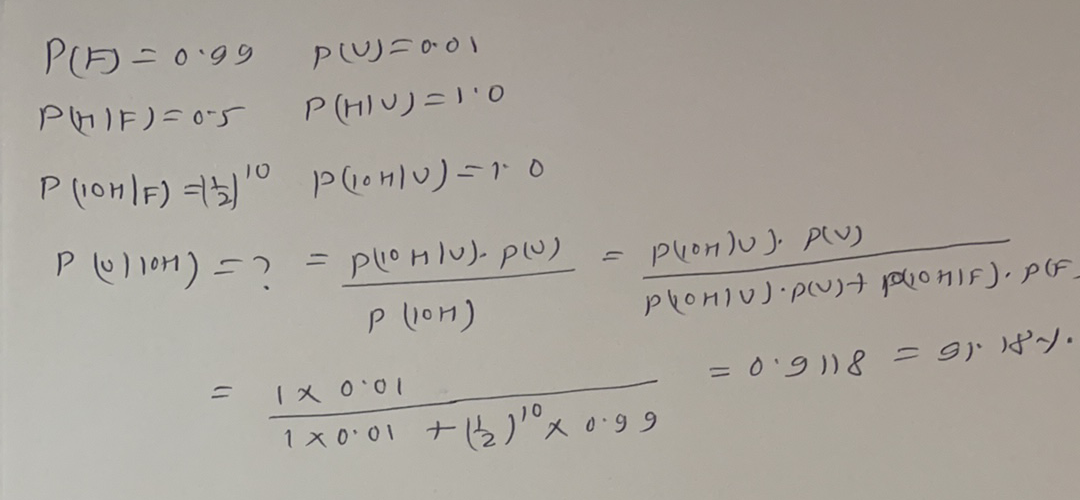 P(F) = 0.99 P(U) = 0.01
P(H|F) = 0.5 P(H|U) = 1.0
P(10H|F) = (1/2)^10 P(10H|U) = 1.0
P(U|10H) = ? = P(10H|U). P(U) / P(10H) = P(10H|U). P(U) / P(10H|U).P(U) + P(10H|F). P(F)
= 1 x 0.01 / 1 x 0.01 + (1/2)^10 x 0.99 = 0.9118 = 91.18%.